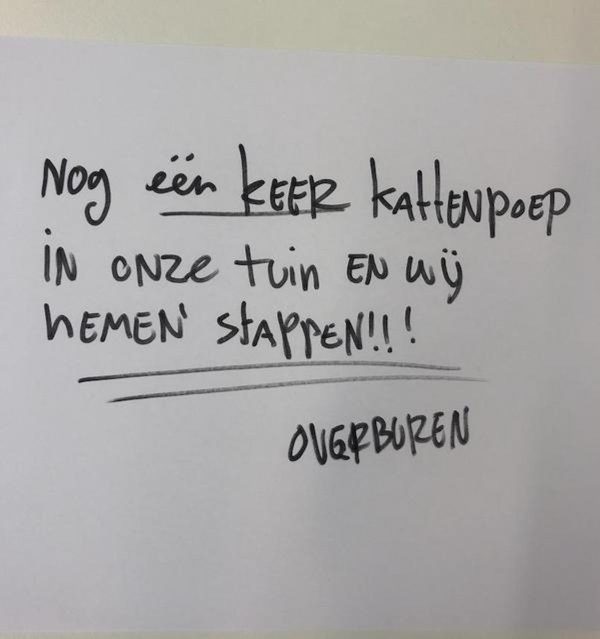 Nog één KEER kattENpoEP
iN ONZE tuin EN wij
NEMEN stAPPEN!!!
OVERBUREN